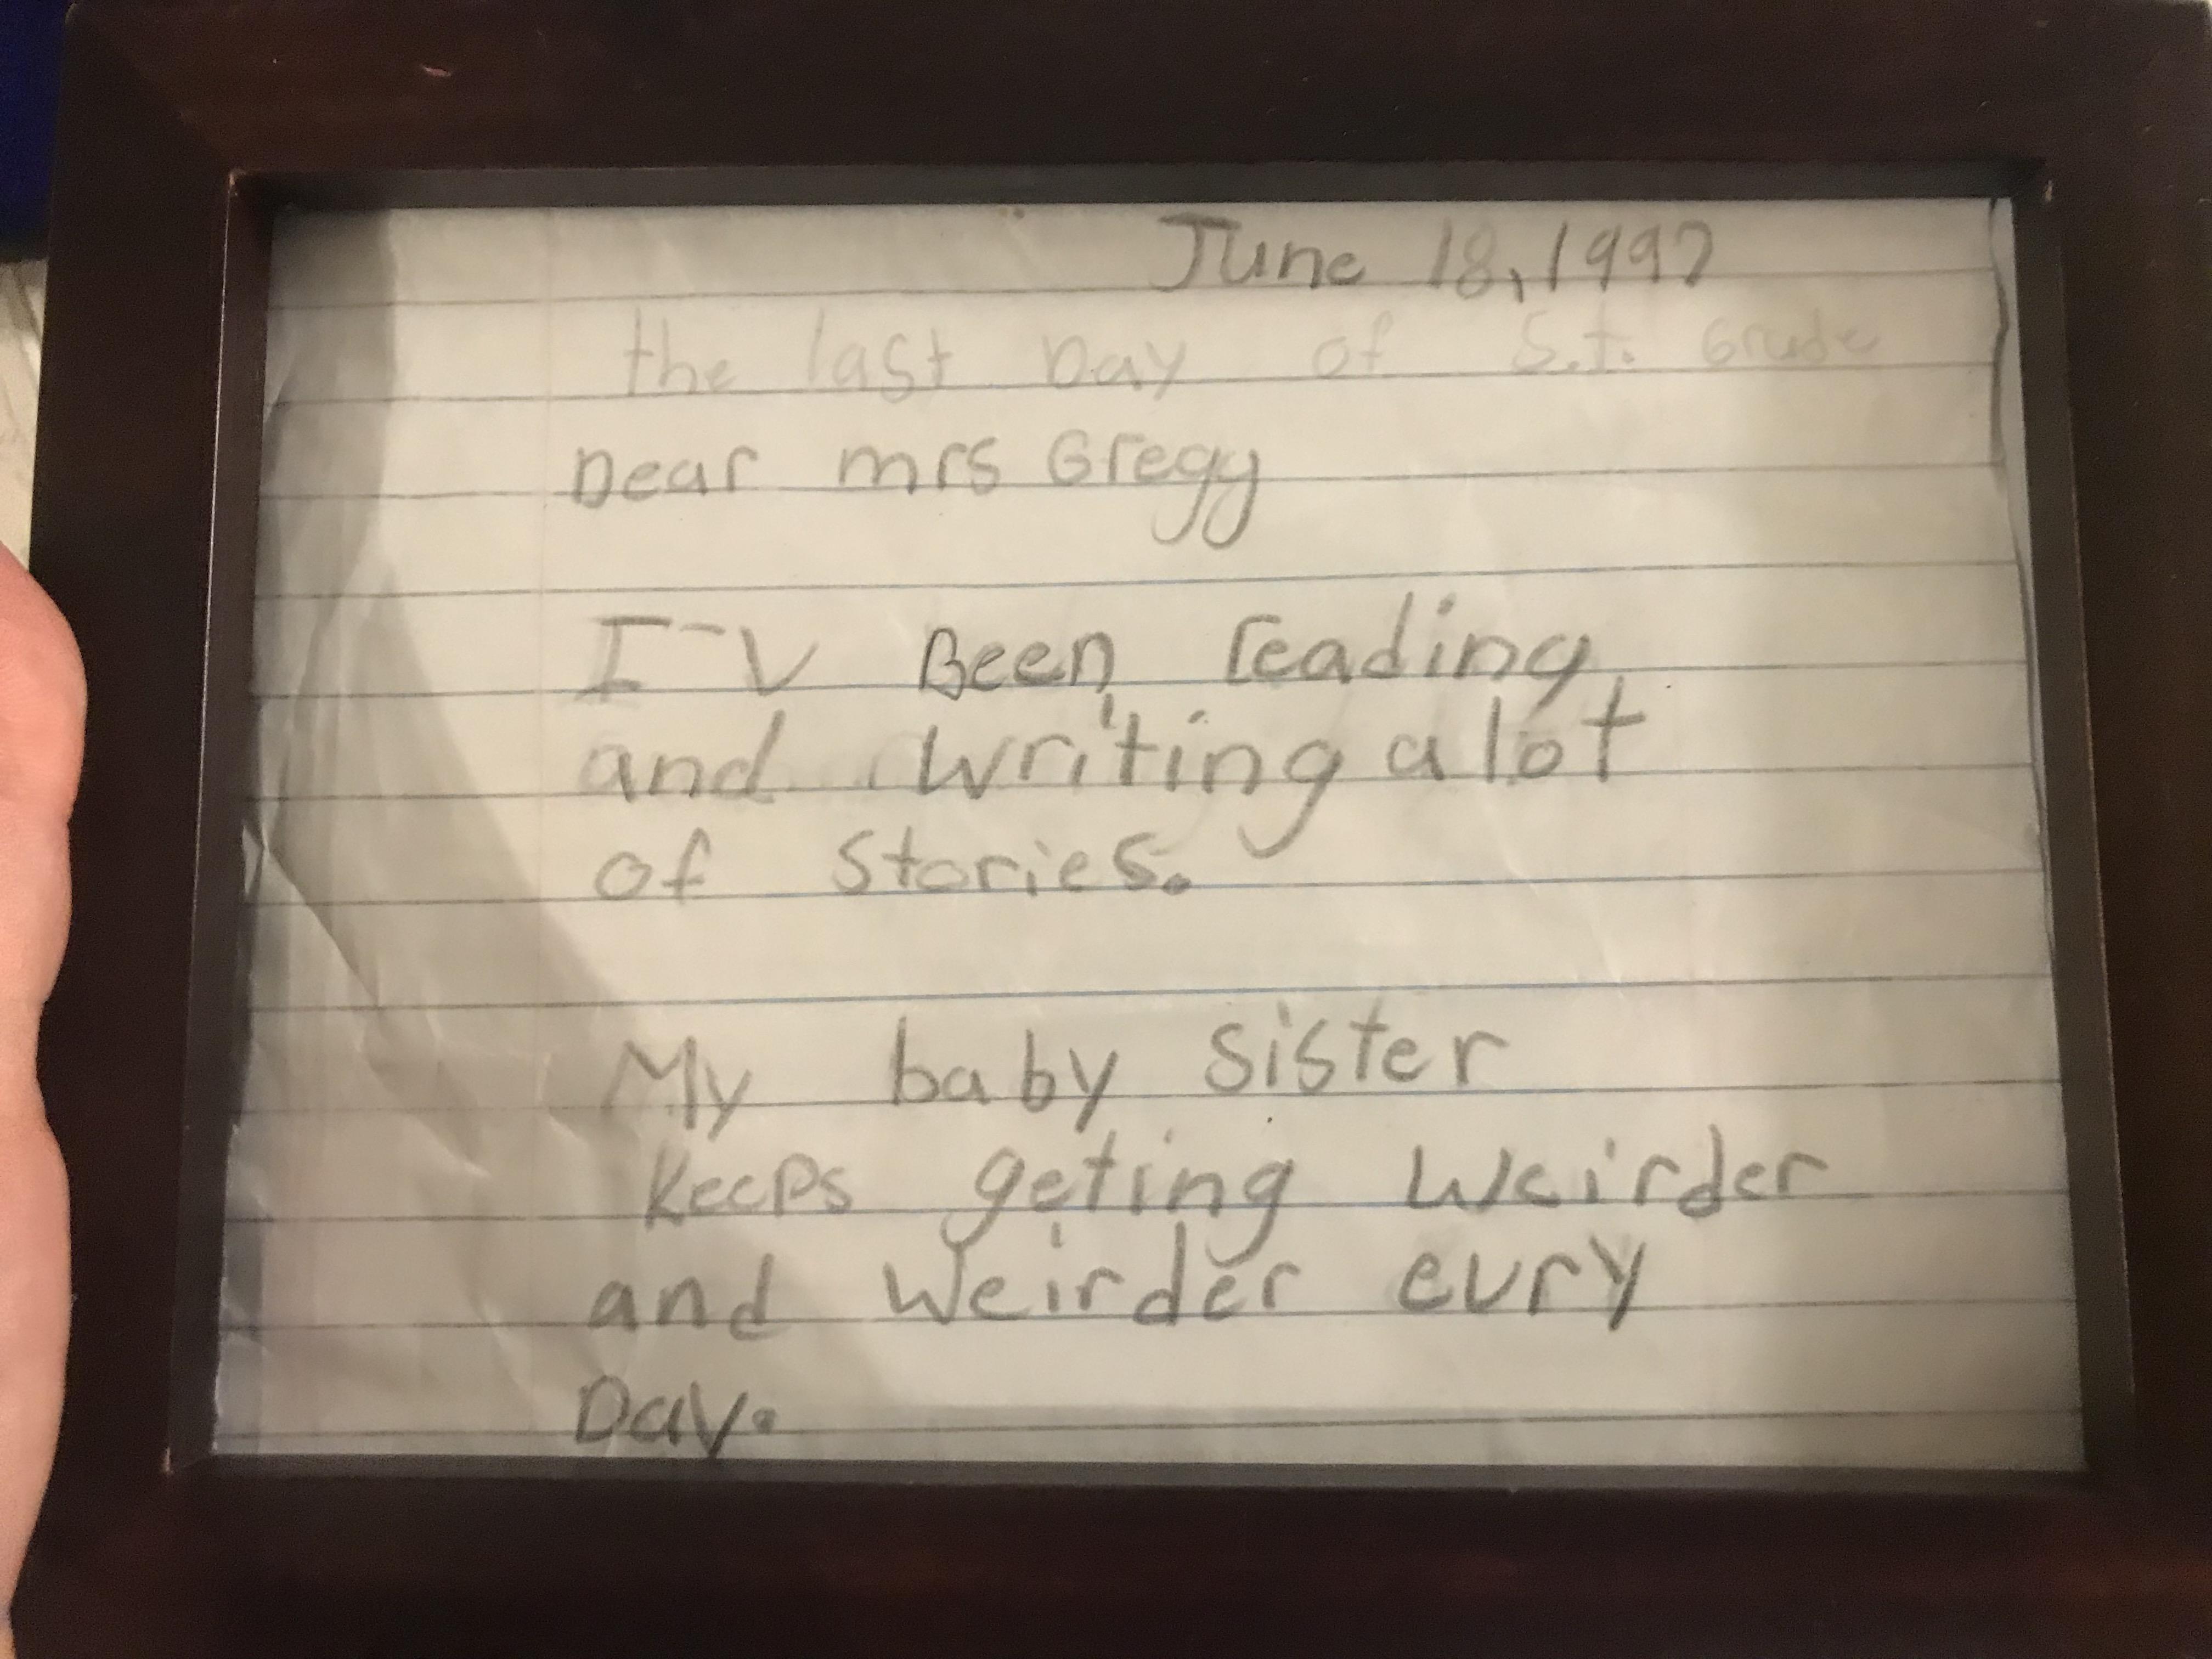 June 18, 1997
the last Day of S.t. Grade
Dear mrs Gregy
I-V Been reading
and writing a lot
of stories.
My baby sister
keeps geting weirder
and weirder evry
Day.